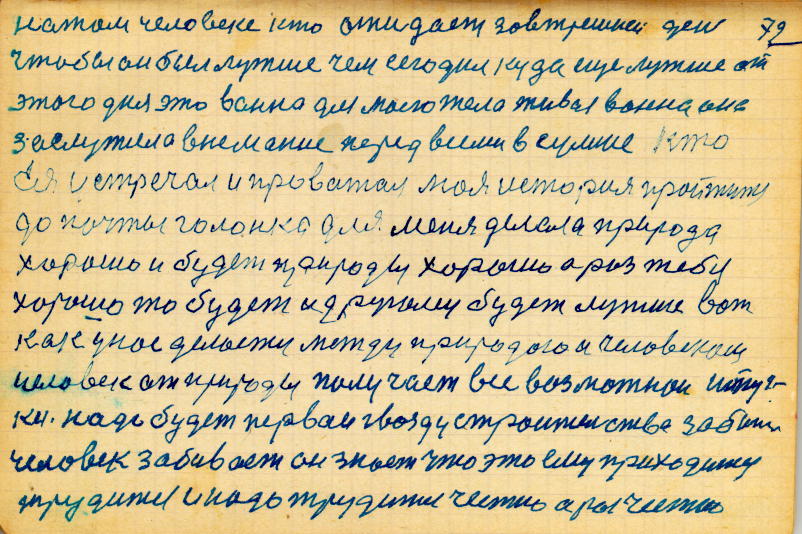 на том человеке кто ожидает зовтрешней ден 79
чтобы он был лутше чем сегодня куда еще лутше от
этого дня это ванна для моего тела живая ванна она
заслужила внемание перед всеми в сумше кто
Ея и стречал и проважал моя история пройти
до почты голонка для меня делала природа
хорошо и будет природы хорошо а раз тебе
хорошо то будет и другому будет лутше вот
как у нас делаежи между природого и человеком
человек от природы получает все возможнои шту-
ки. надо будет первай гвозд устроителства забит
человек забивает он знает что это ему приходитя
трудится и надо трудится честно а раз честно